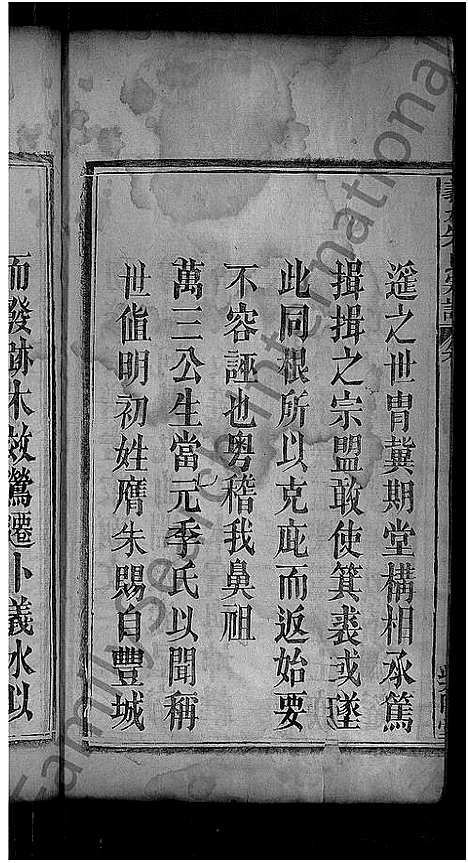 遥之世胄冀期堂構相承篤
揖揖之宗盟敢使箕裘或墜
此同根所以克庇而返始要
不容誣也粵稽我鼻祖
萬三公生當元季氏以聞稱
世值明初姓膺朱賜自豐城
而發跡木效鶯遷卜義水以
Family Search International